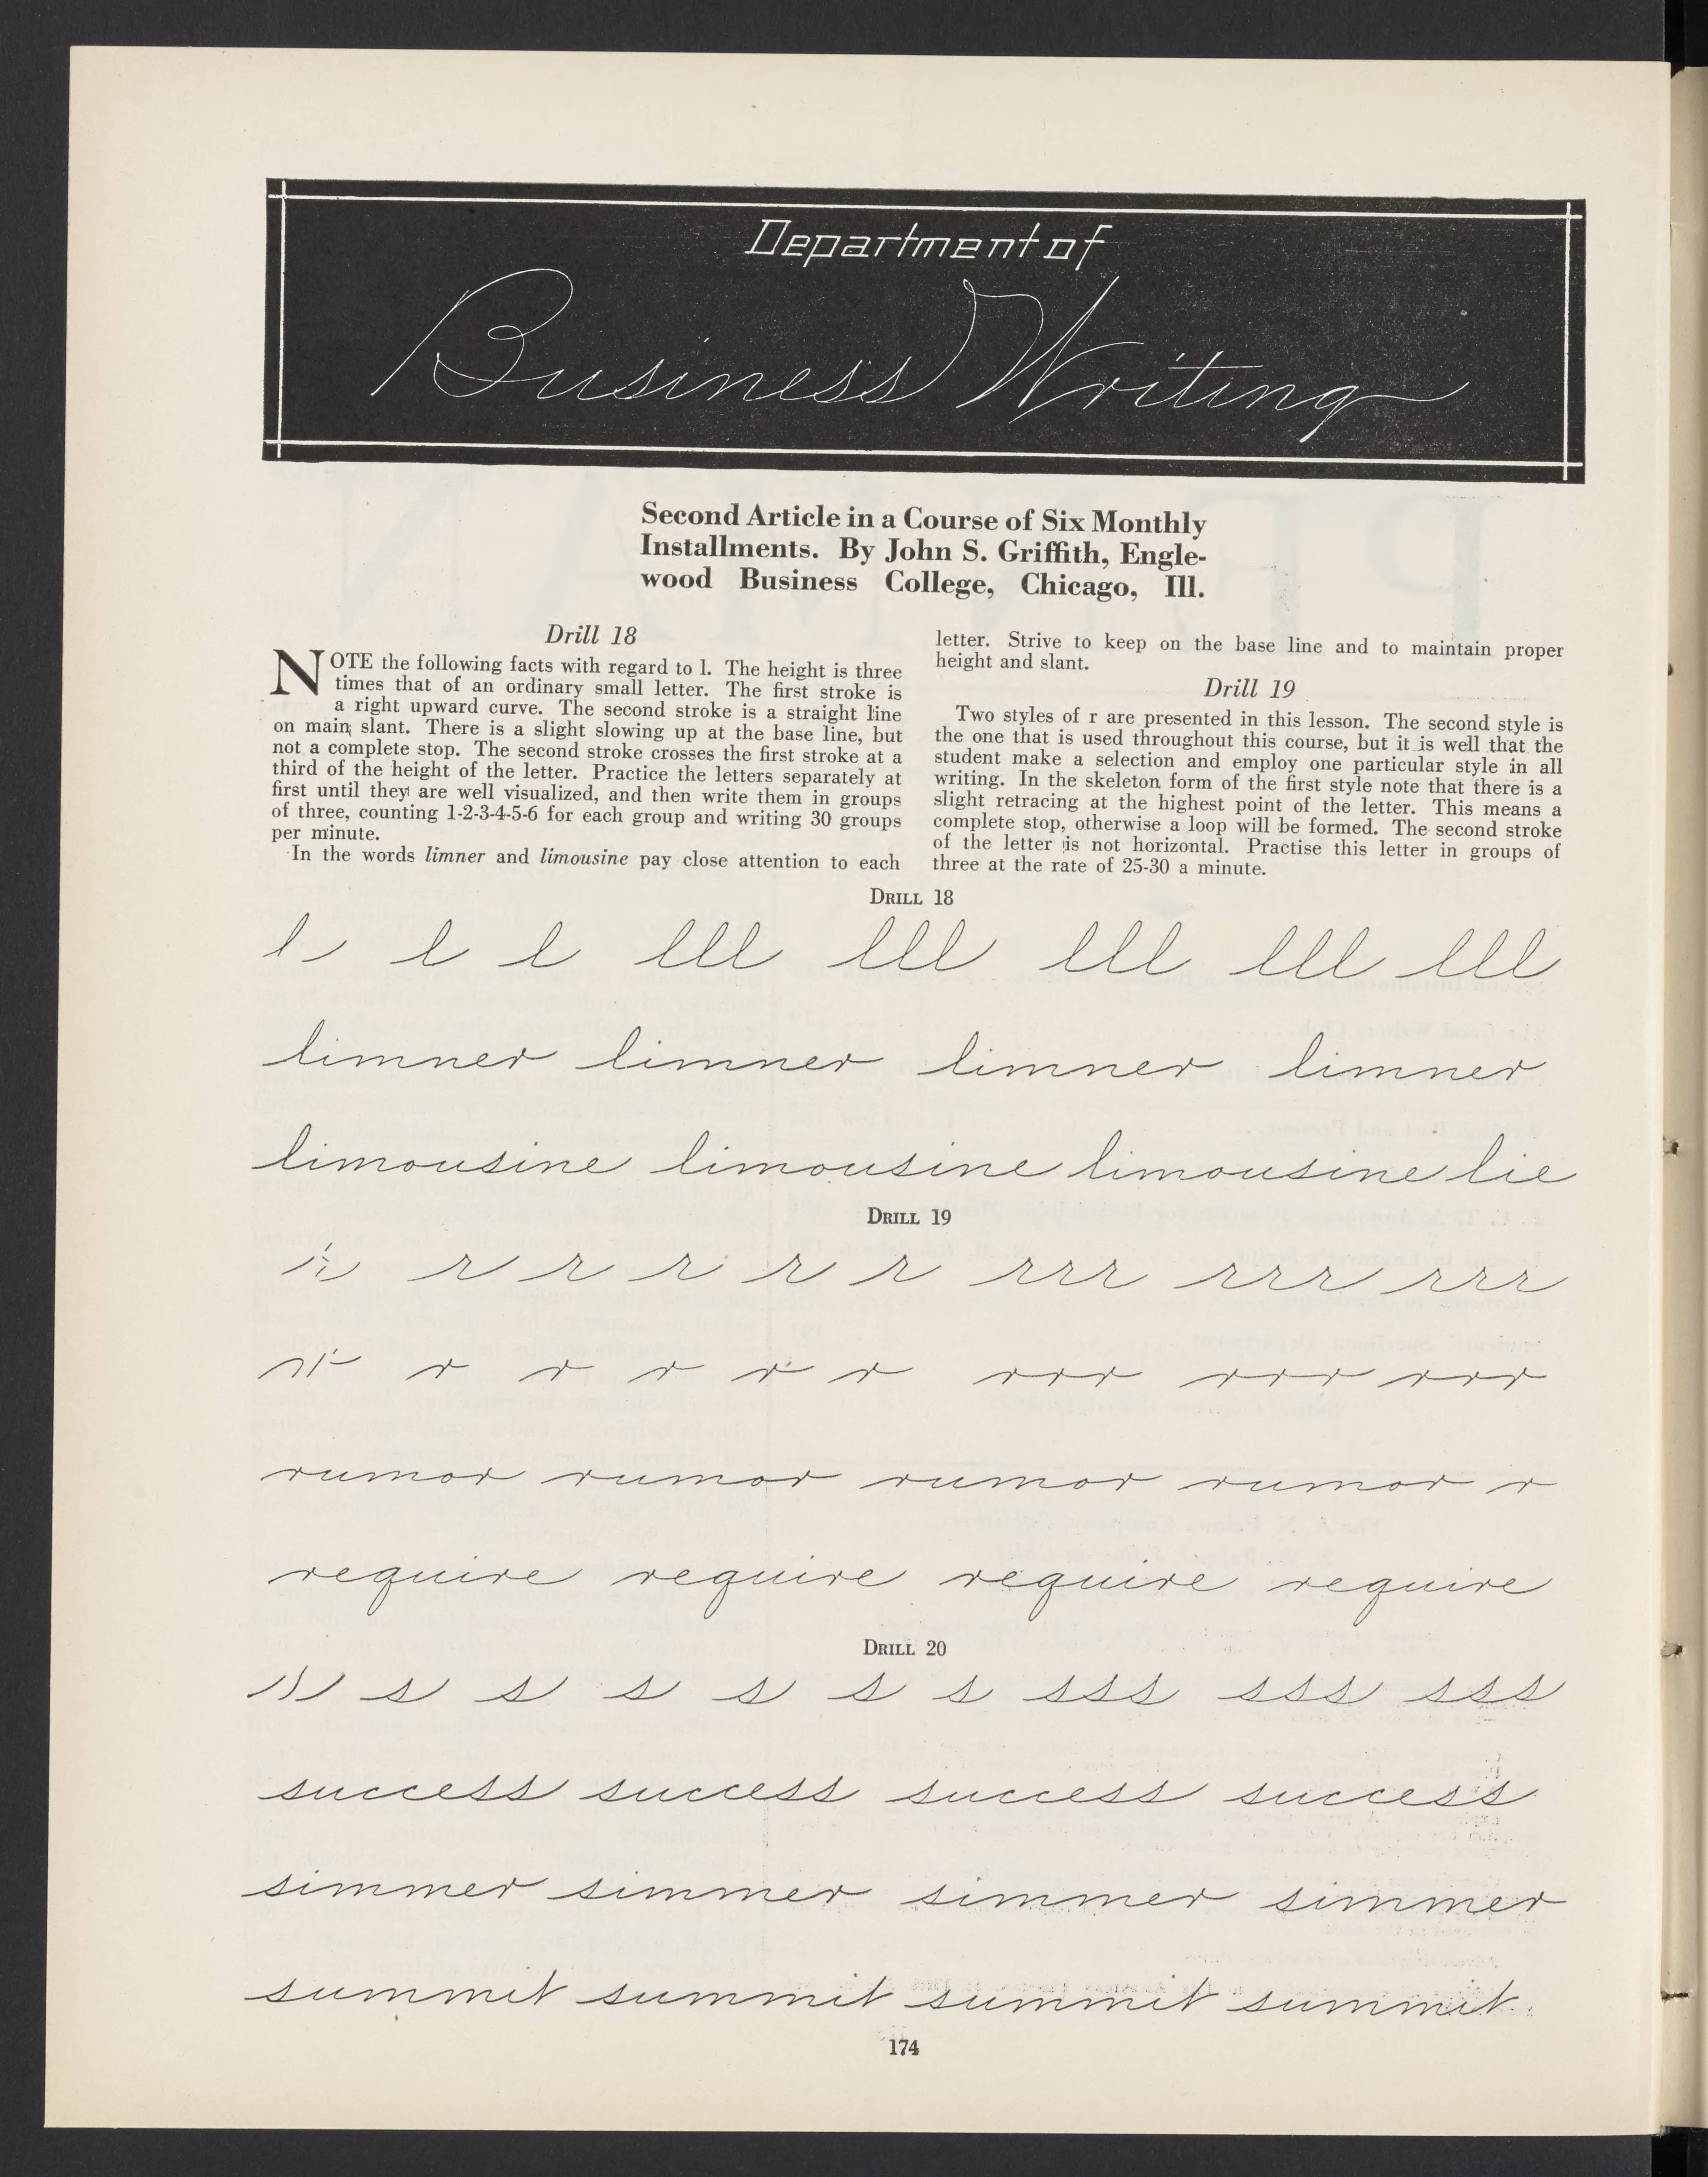 Department of
Business Writing
Second Article in a Course of Six Monthly
Installments. By John S. Griffith, Engle-
wood Business College, Chicago, Ill.
Drill 18
NOTE the following facts with regard to l. The height is three
times that of an ordinary small letter. The first stroke is
a right upward curve. The second stroke is a straight line
on main slant. There is a slight slowing up at the base line, but
not a complete stop. The second stroke crosses the first stroke at a
third of the height of the letter. Practice the letters separately at
first until they are well visualized, and then write them in groups
of three, counting 1-2-3-4-5-6 for each group and writing 30 groups
per minute.
In the words limner and limousine pay close attention to each
letter. Strive to keep on the base line and to maintain proper
height and slant.
Drill 19
Two styles of r are presented in this lesson. The second style is
the one that is used throughout this course, but it is well that the
student make a selection and employ one particular style in all
writing. In the skeleton form of the first style note that there is a
slight retracing at the highest point of the letter. This means a
complete stop, otherwise a loop will be formed. The second stroke
of the letter is not horizontal. Practise this letter in groups of
three at the rate of 25-30 a minute.
DRILL 18
l l l lll lll lll lll lll
limner limner limner limner
limousine limousine limousine lie
DRILL 19
r r r r r r rrr rrr rrr
r r r r r r rrr rrr rrr
rumor rumor rumor rumor r
require require require require
DRILL 20
s s s s s s s sss sss sss
success success success success
simmer simmer simmer simmer
summit summit summit summit
174